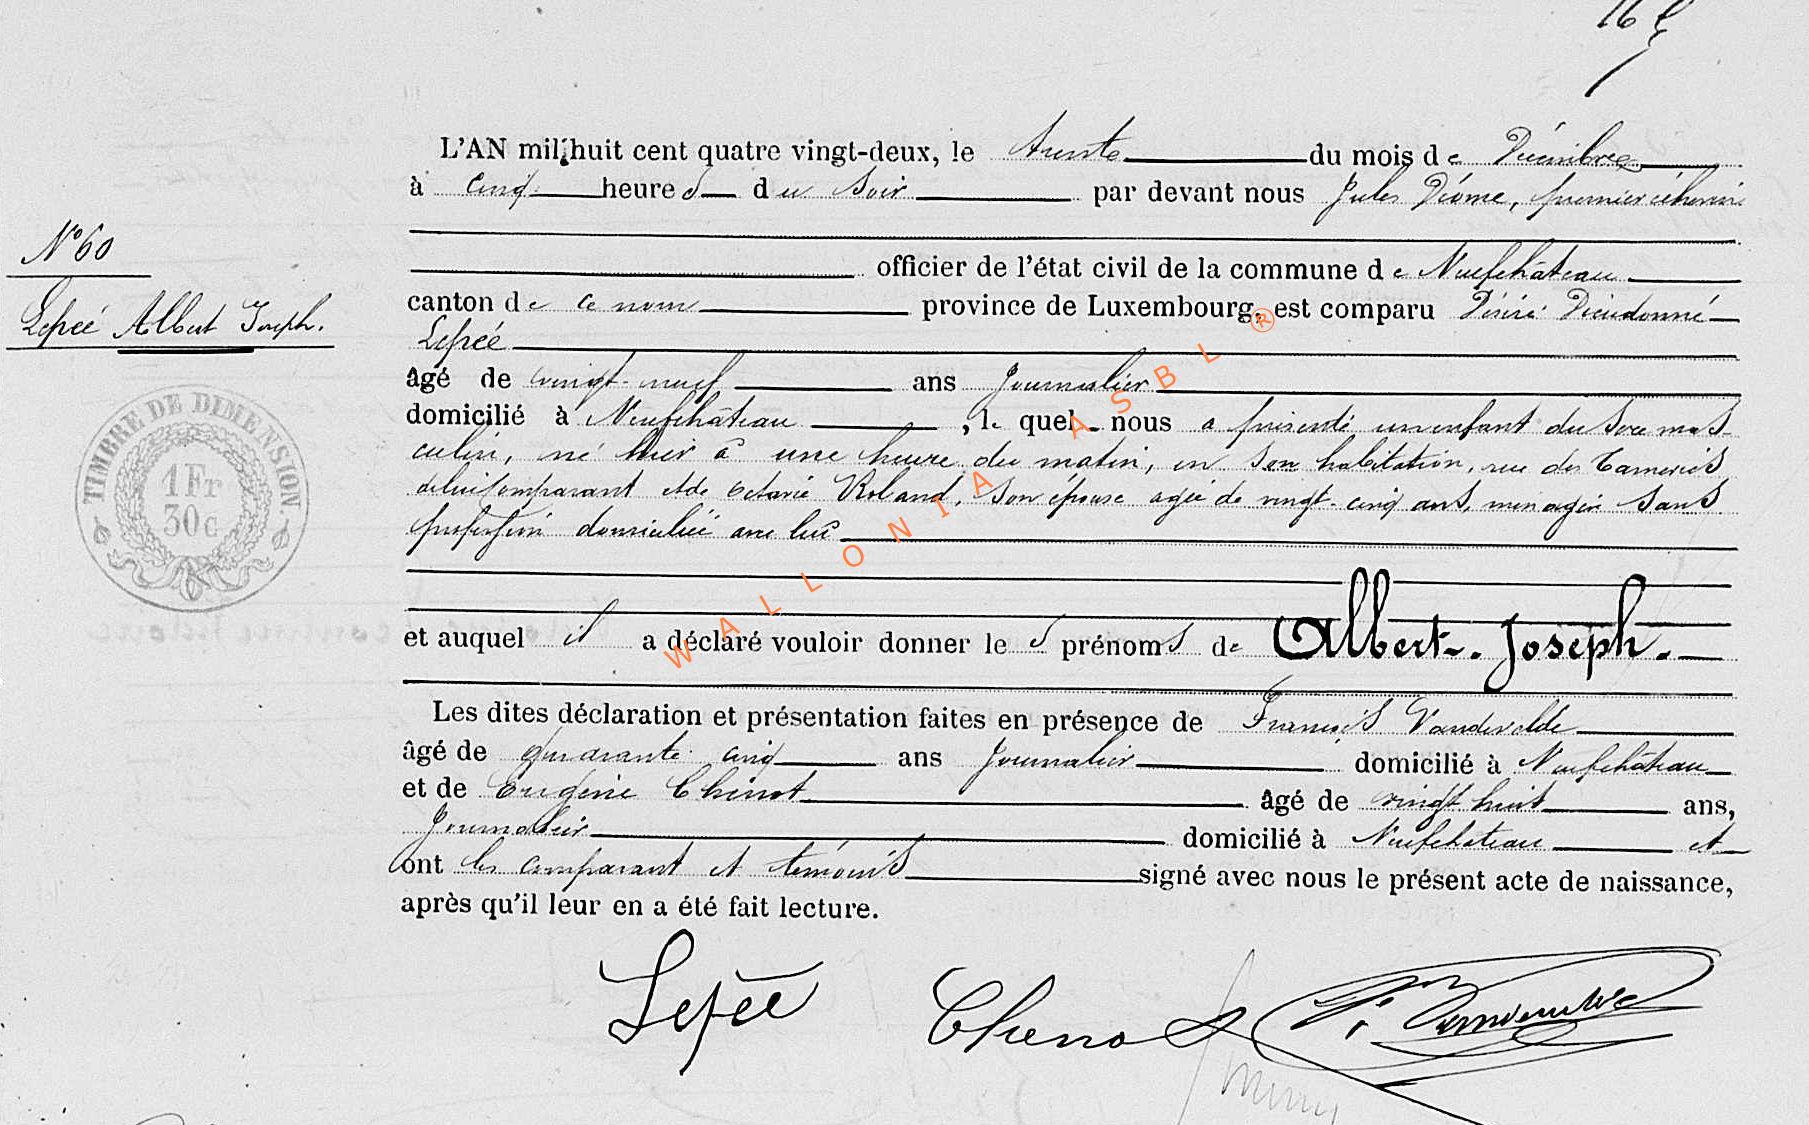 L'AN mil huit cent quatre vingt-deux, le trente du mois de Décembre
à cinq heures du soir par devant nous Jules Déome, premier échevin
N° 60
officier de l'état civil de la commune de Neufchâteau
canton de ce nom province de Luxembourg, est comparu Désiré Dieudonné
Lepeé Albert Joseph.
Lepeé
âgé de vingt-neuf ans Journalier
domicilié à Neufchâteau, lequel nous a présenté un enfant du sexe mas-
culin, né hier à une heure du matin, en son habitation, rue des Tanneries
de lui comparant et de Octavie Roland, son épouse agée de vingt-cinq ans, menagère sans
profession domiciliée avec lui
TIMBRE DE DIMENSION
1 Fr
30c
et auquel il a déclaré vouloir donner les prénoms de Albert-Joseph.
Les dites déclaration et présentation faites en présence de François Vandevelde
âgé de quarante cinq ans Journalier domicilié à Neufchâteau
et de Eugène Chenot âgé de vingt huit ans,
Journalier domicilié à Neufchateau et
ont les comparant et témoins signé avec nous le présent acte de naissance,
après qu'il leur en a été fait lecture.
Lepeé Chenot
WALLONIA ASBL ®